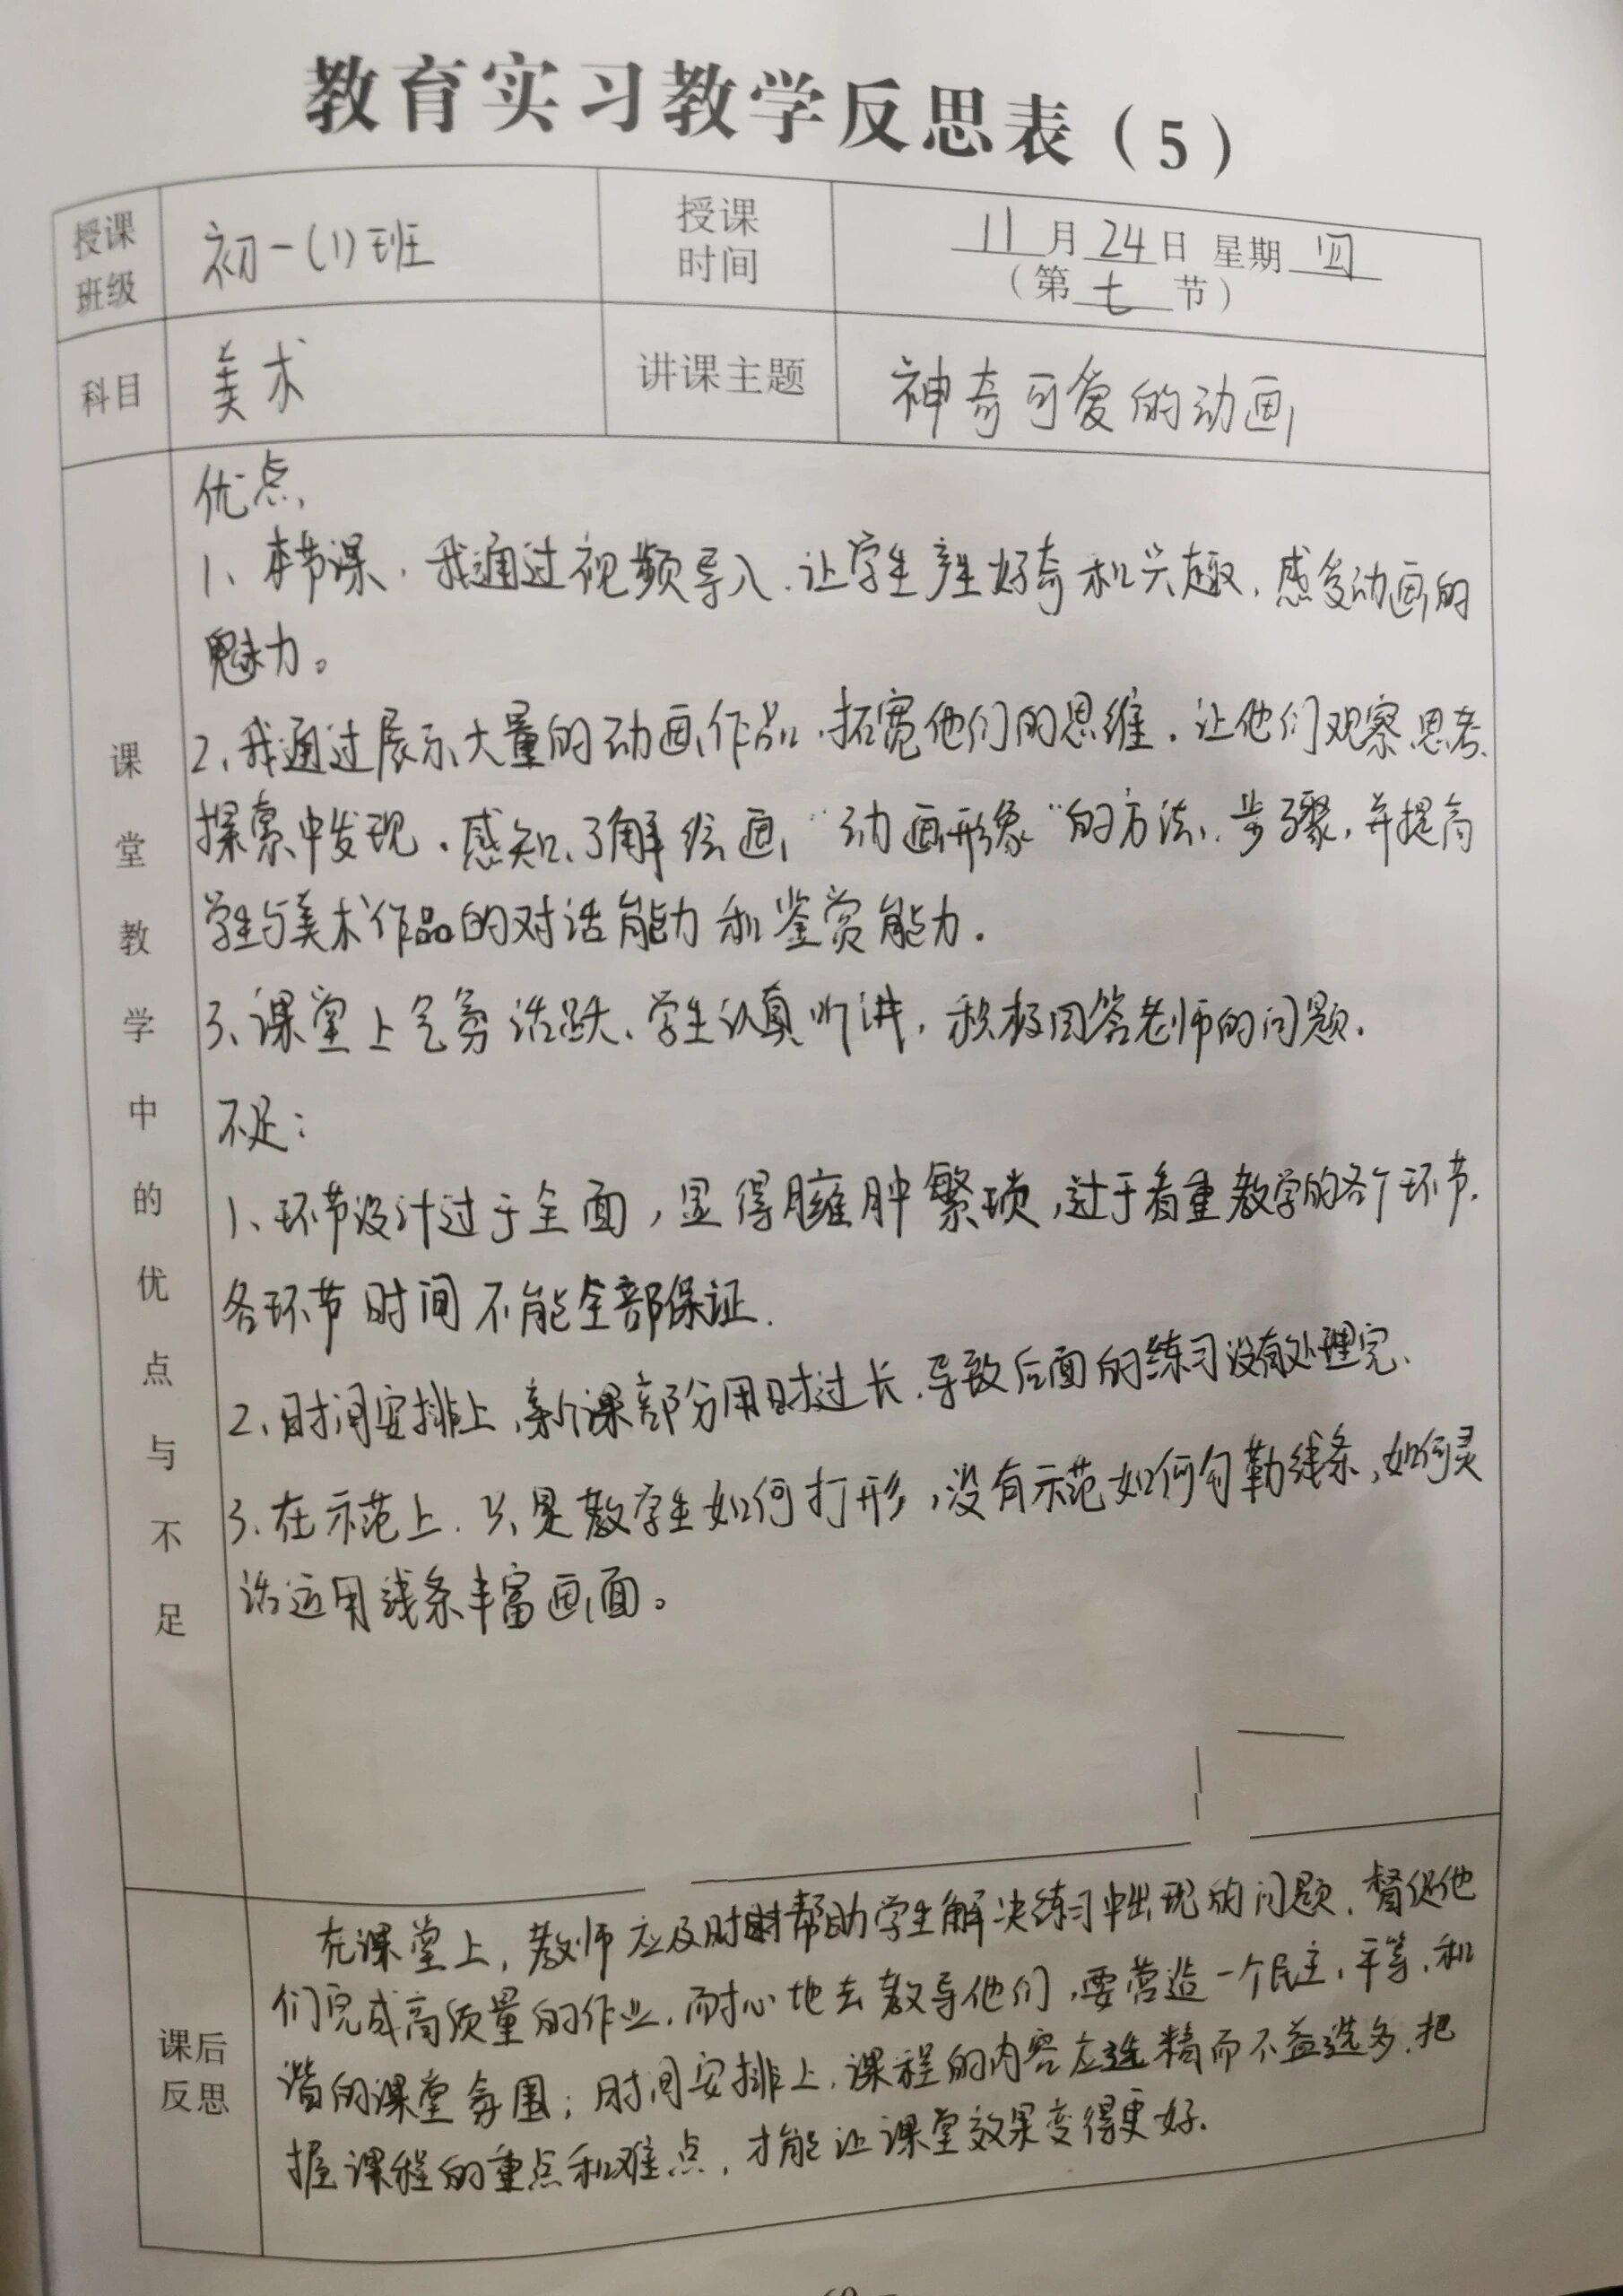 教育实习教学反思表（5）
授课班级 初一(1)班 授课时间 11月24日 星期四
（第七节）
科目 美术 讲课主题 神奇可爱的动画
课堂教学中的优点与不足
优点、
1、本节课，我通过视频导入，让学生产生好奇和兴趣，感受动画的
魅力。
2、我通过展示大量的动画作品，拓宽他们的思维。让他们观察思考、
探索中发现、感知、了解绘画“动画形象”的方法、步骤，并提高
学生与美术作品的对话能力和鉴赏能力。
3、课堂上气氛活跃、学生认真听讲，积极回答老师的问题。
不足：
1、环节设计过于全面，显得臃肿繁琐，过于看重教学的各个环节，
各环节时间不能全部保证.
2、时间安排上，新课部分用时过长，导致后面的练习没有处理完、
3、在示范上，只是教学生如何打形，没有示范如何勾勒线条，如何灵
活运用线条丰富画面。
课后反思
在课堂上，教师应及时帮助学生解决练习中出现的问题，督促他
们完成高质量的作业，耐心地去教导他们，要营造一个民主、平等、和
谐的课堂氛围；时间安排上，课程的内容应选精而不益选多，把
握课程的重点和难点，才能让课堂效果变得更好.